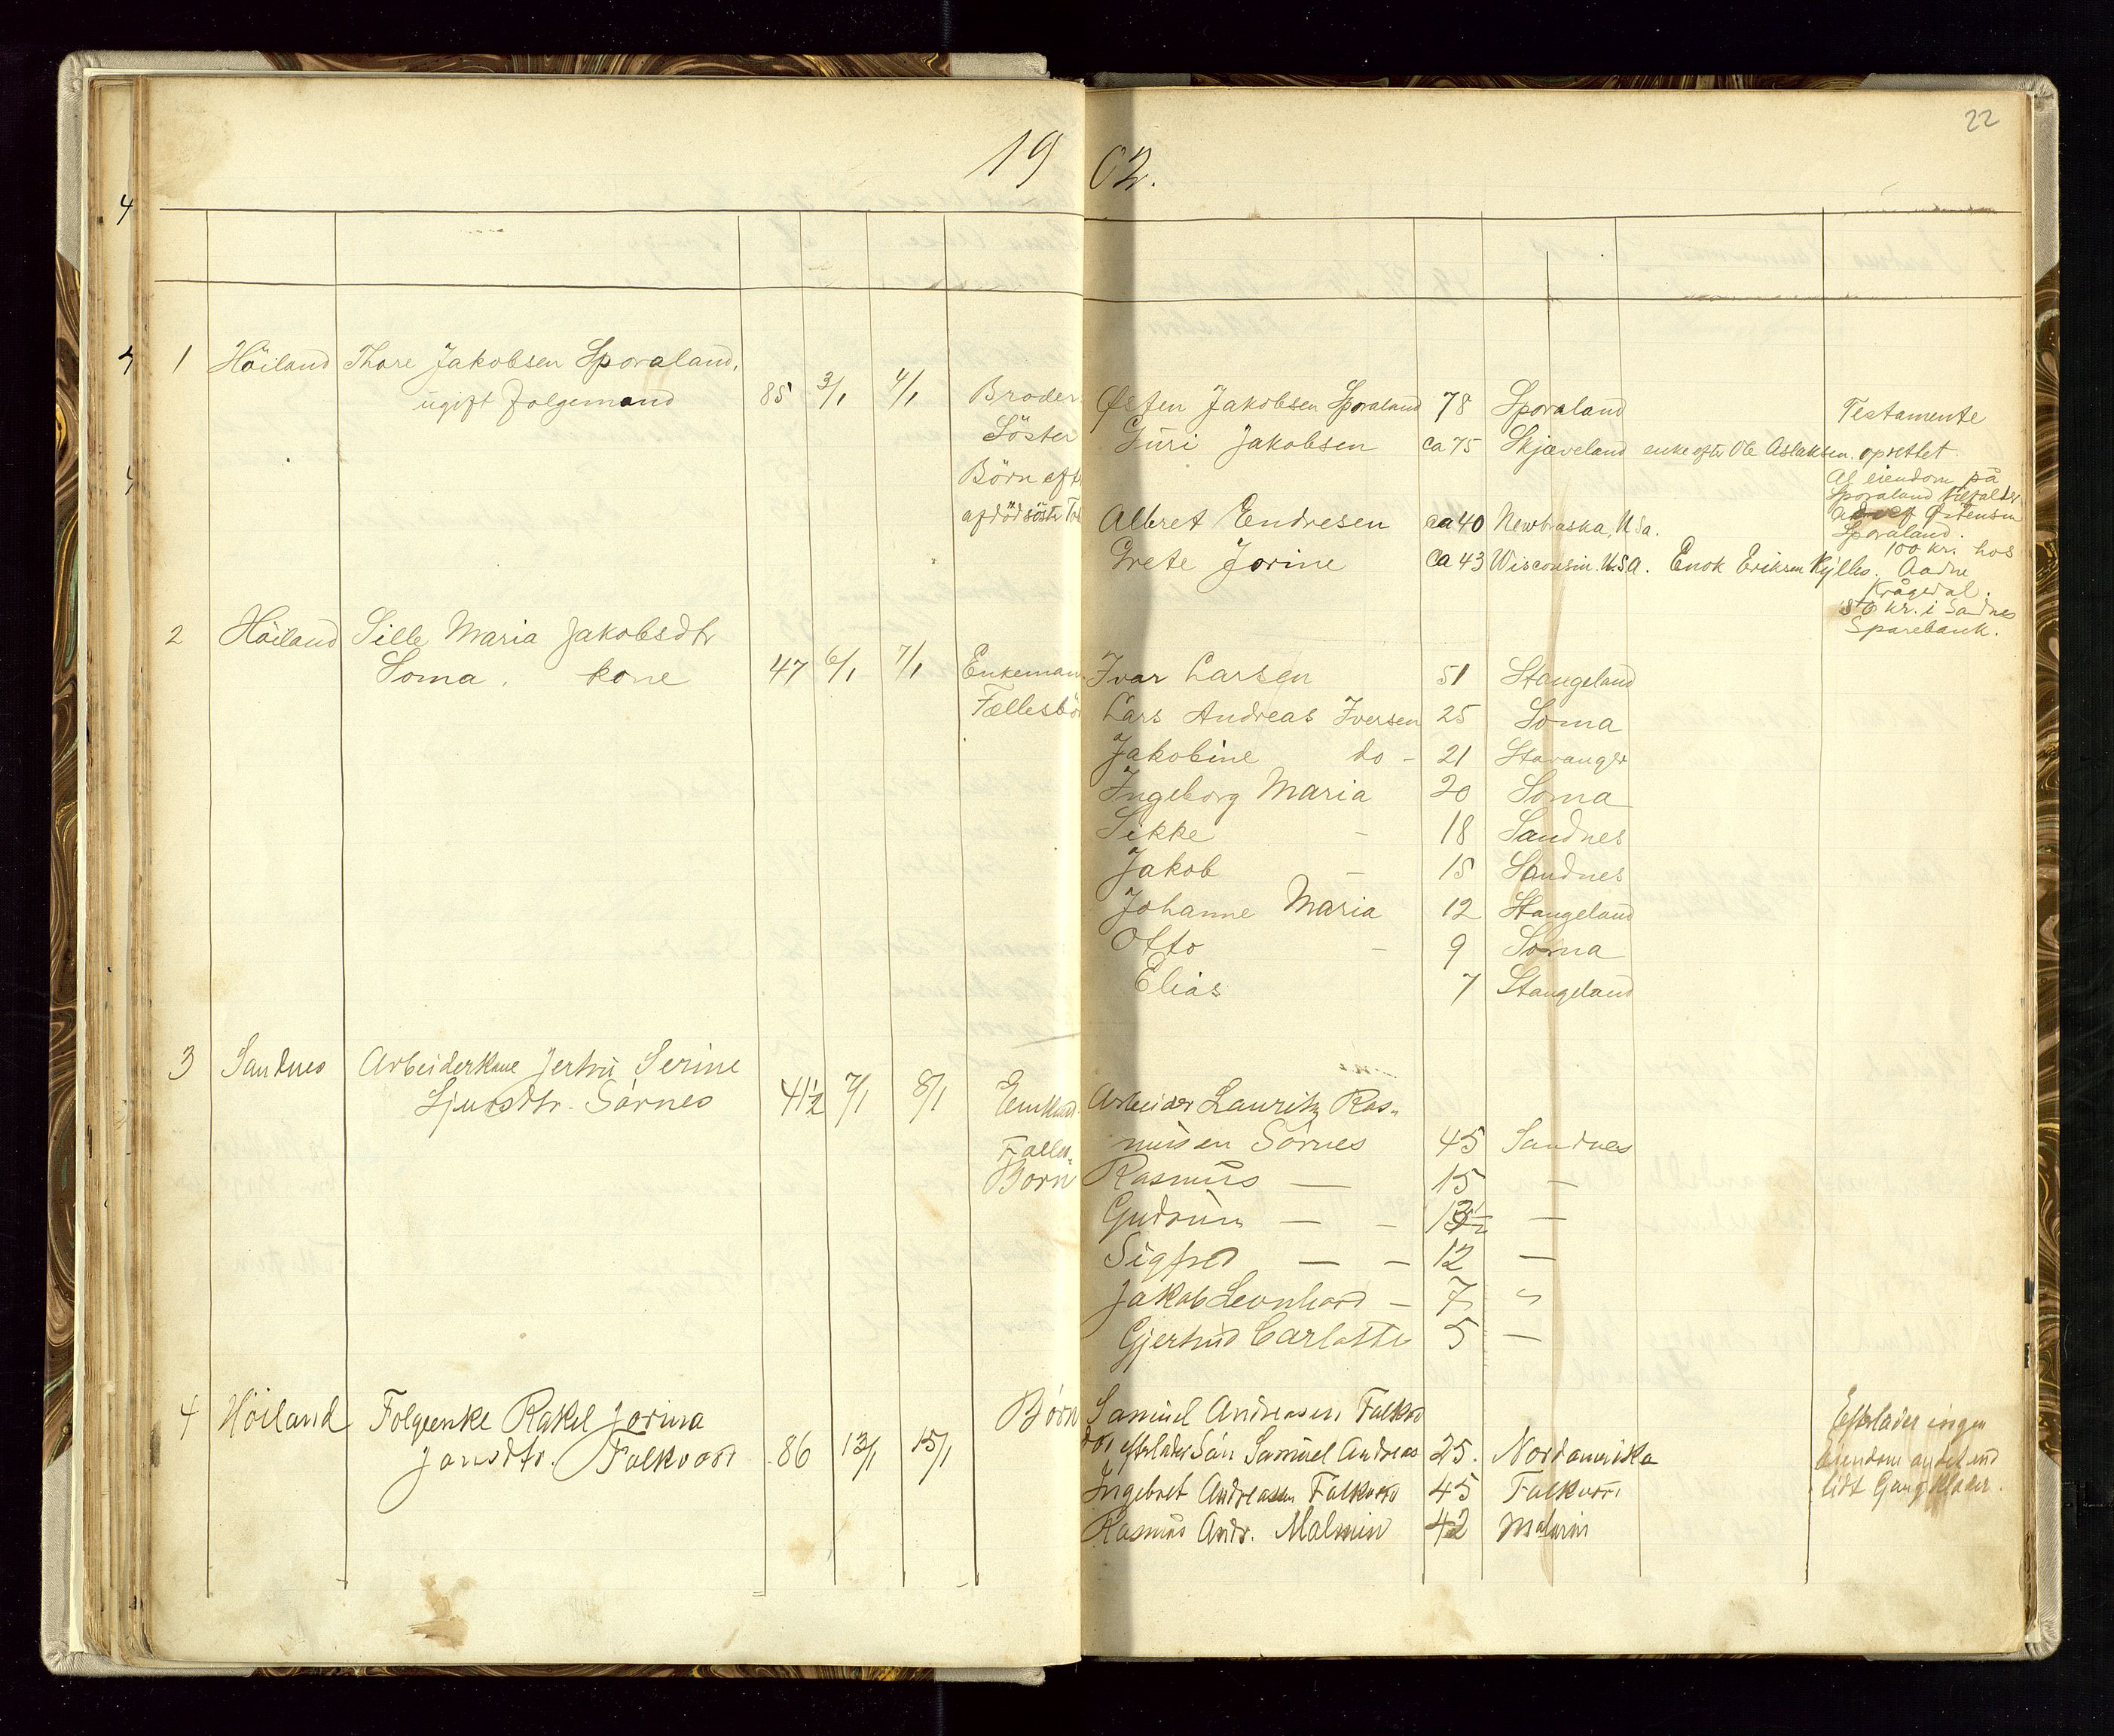 22
1902.
4
1 Höiland Thore Jakobsen Sporaland,
ugift Folgemand 85 3/1 4/1 Broder Østen Jakobsen Sporaland 78 Sporaland Testamente
Söster Guri Jakobsen ca 75 Skjæveland enke efter Ole Aslaksen. oprettet.
Börn eft
afdöd söster Albret Endresen ca 40 Newbraska, U.S.a.
Grete Jorine ca 43 Wisconsin. U.S.A. Enok Eriksen Kylles.
Al eiendom på
Sporaland tilfalder
Østensen
Sporaland.
100 kr. hos
Aadne
Krågedal.
kr. i Sandnes
Sparebank.
2 Höiland Sille Maria Jakobsdtr
Soma. kone 47 6/1 7/1 Enkeman Ivar Larsen 51 Stangeland
Fællesbö Lars Andreas Iversen 25 Soma
Jakobine do - 21 Stavanger
Ingeborg Maria 20 Soma
Sikke - 18 Sandnes
Jakob - 15 Sandnes
Johanne Maria 12 Stangeland
Otto - 9 Soma
Elias 7 Stangeland
3 Sandnes Arbeiderkone Jertru Serine
Sjursdtr. Sørnes 41½ 7/1 8/1 Arbeider Lauritz Ras-
mussen Sørnes 45 Sandnes
Fælles-
Børn Rasmus — 15 —
Gudrun — - 13½ —
Sigfred — - 12 —
Jakob Leonhard - 7 "
Gjertrud Carlotte 5 —
4 Höiland Folgeenke Rakel Jorina
Jansdtr. Falkvard 86 13/1 15/1 Børn Samuel Andreasen
død efterlader Søn Samuel Andreas 25. Nordamerika
Ingebret Andreasen Falkvard 45 Falkvard
Rasmus Andr. Malmin 42 Malmin
Efterlader ingen
eiendom andet end
lidt Gangklæder.